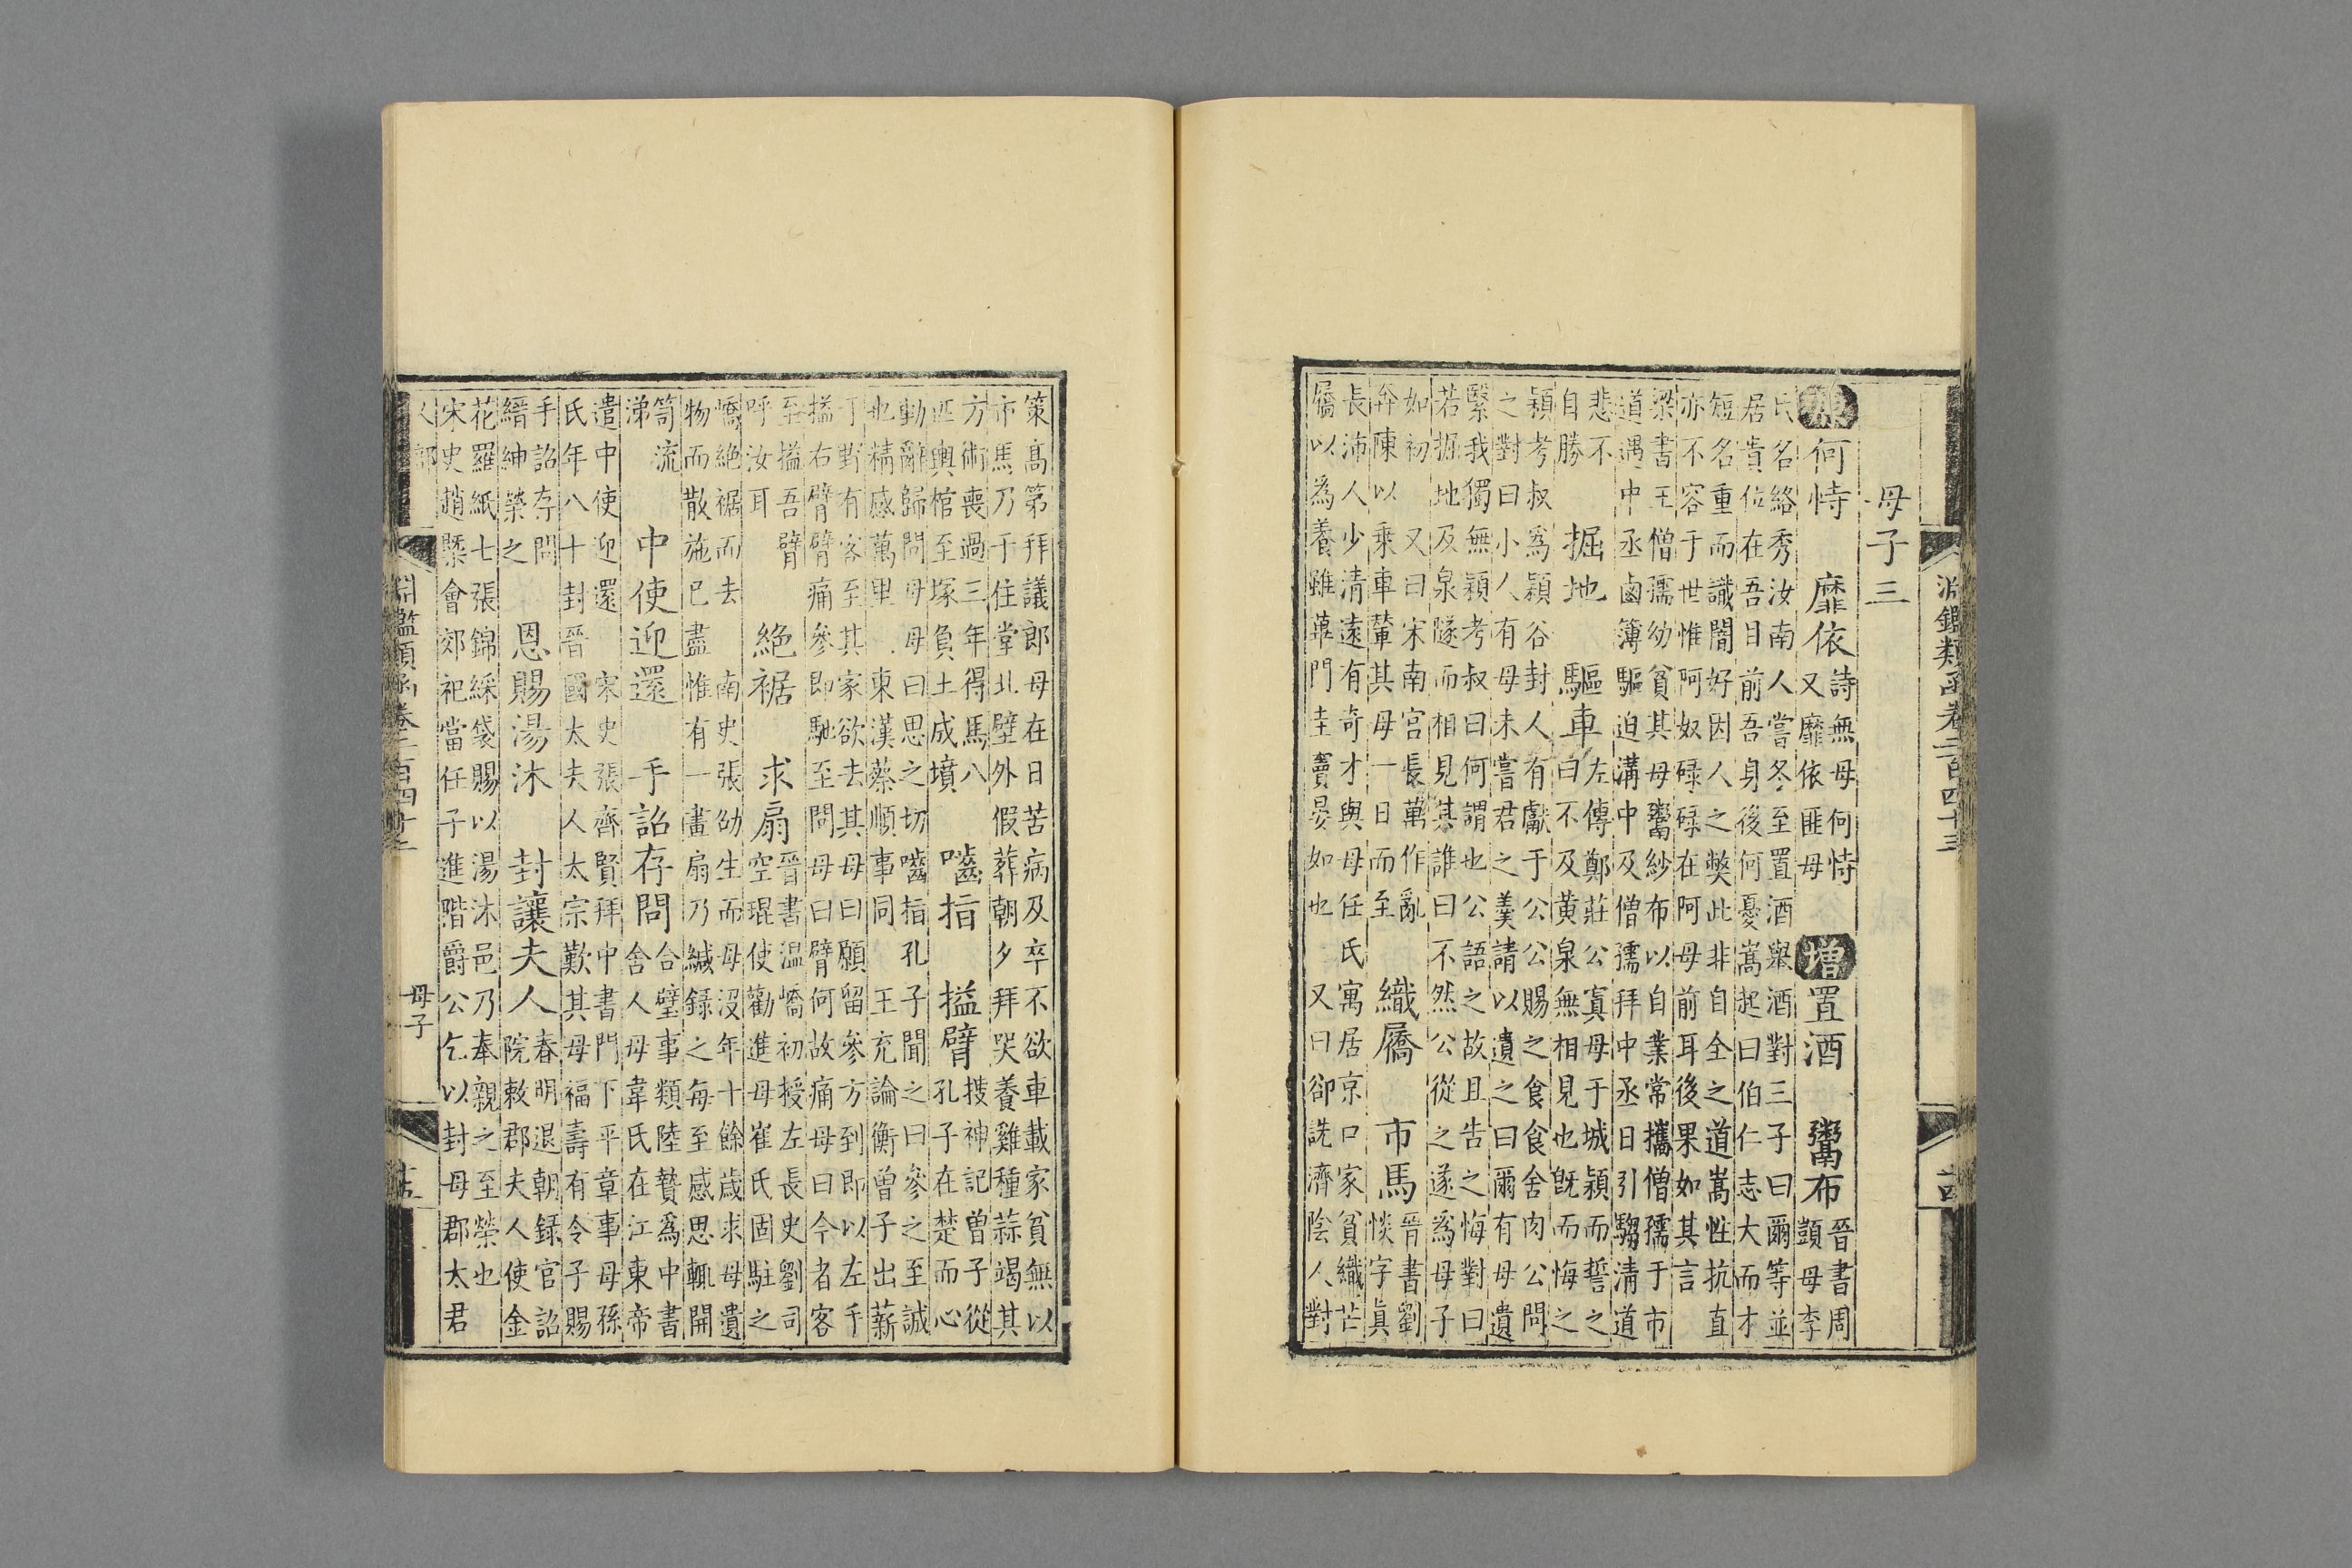 淵鑑類函卷二百四十三 十四
母子三
原何恃 靡依
詩無母何恃
又靡依匪母
增置酒 鬻布
晉書周
顗母李
氏名絡秀汝南人嘗冬至置酒舉酒對三子曰爾等並
居貴位在吾目前吾身後何憂嵩起曰伯仁志大而才
短名重而識闇好因人之弊此非自全之道嵩性抗直
亦不容于世惟阿奴碌碌在阿母前耳後果如其言
梁書王僧孺幼貧其母鬻紗布以自業常攜僧孺于市
道遇中丞鹵簿驅迫溝中及僧孺拜中丞日引騶清道
悲不
自勝
掘地 驅車
左傳鄭莊公寘母于城潁而誓之
曰不及黃泉無相見也旣而悔之
潁考叔爲潁谷封人有獻于公公賜之食食舍肉公問
之對曰小人有母未嘗君之羹請以遺之曰爾有母遺
繄我獨無潁考叔曰何謂也公語之故且告之悔對曰
若掘地及泉隧而相見其誰曰不然公從之遂爲母子
如初 又曰宋南宮長萬作亂
奔陳以乘車輦其母一日而至
織屩 市馬
晉書劉
惔字眞
長沛人少清遠有奇才與母任氏寓居京口家貧織芒
屩以爲養雖蓽門圭竇晏如也 又曰郤詵濟陰人對
策高第拜議郎母在日苦病及卒不欲車載家貧無以
市馬乃于住堂北壁外假葬朝夕拜哭養雞種蒜竭其
方術喪過三年得馬八
匹輿棺至塚負土成墳
嚙指 搤臂
搜神記曾子從
孔子在楚而心
動辭歸問母母曰思之切嚙指孔子聞之曰參之至誠
也精感萬里 東漢蔡順事同 王充論衡曾子出薪
于野有客至其家欲去其母曰願留參方到即以左手
搤右臂臂痛參即馳至問母曰臂何故痛母曰今者客
至搤吾臂
呼汝耳
絕裾 求扇
晉書温嶠初授左長史劉司
空琨使勸進母崔氏固駐之
嶠絕裾而去 南史張劭生而母沒年十餘歲求母遺
物而散施已盡惟有一畫扇乃緘錄之每至感思輒開
笥流
涕
中使迎還 手詔存問
合璧事類陸贄爲中書
舍人母韋氏在江東帝
遣中使迎還 宋史張齊賢拜中書門下平章事母孫
氏年八十封晉國太夫人太宗歎其母福壽有令子賜
手詔存問
縉紳榮之
恩賜湯沐 封讓夫人
春明退朝錄官詔
院敕郡夫人使金
花羅紙七張錦綵袋賜以湯沐邑乃奉親之至榮也
宋史趙槩會郊祀當任子進階爵公乞以封母郡太君
人部 淵鑑類函卷二百四十三 母子 十五